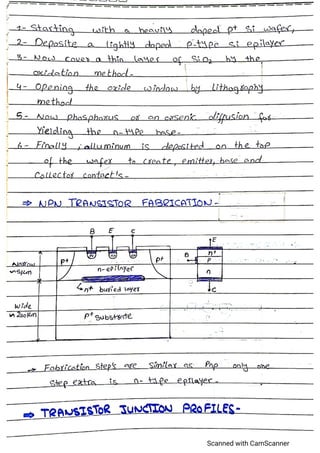 1- Starting with a heavily doped p+ si wafer,
2- Deposite a lightly doped p-type si epilayer
3- Now cover a thin layer of SiO2 by the
oxidation method-
4- Opening the oxide window by lithography
method
5- Now phosphorus or an arsenic diffusion for
Yielding the n-type base-
6- Finally, alluminum is deposited on the top
of the wafer to create, emitter, base and
collector contact's-
⇒ NPN TRANSISTOR FABRICATION-
B E C
E
p+ p+
n+
B
p
Narrow
~5μm
n-epilayer
n
n+ buried layer
C
Wide
p+ substrate
→ Fabrication step's are similar as Pnp only one
step extra is n-type epilayer-
⇒ TRANSISTOR JUNCTION PROFILES-
Scanned with CamScanner